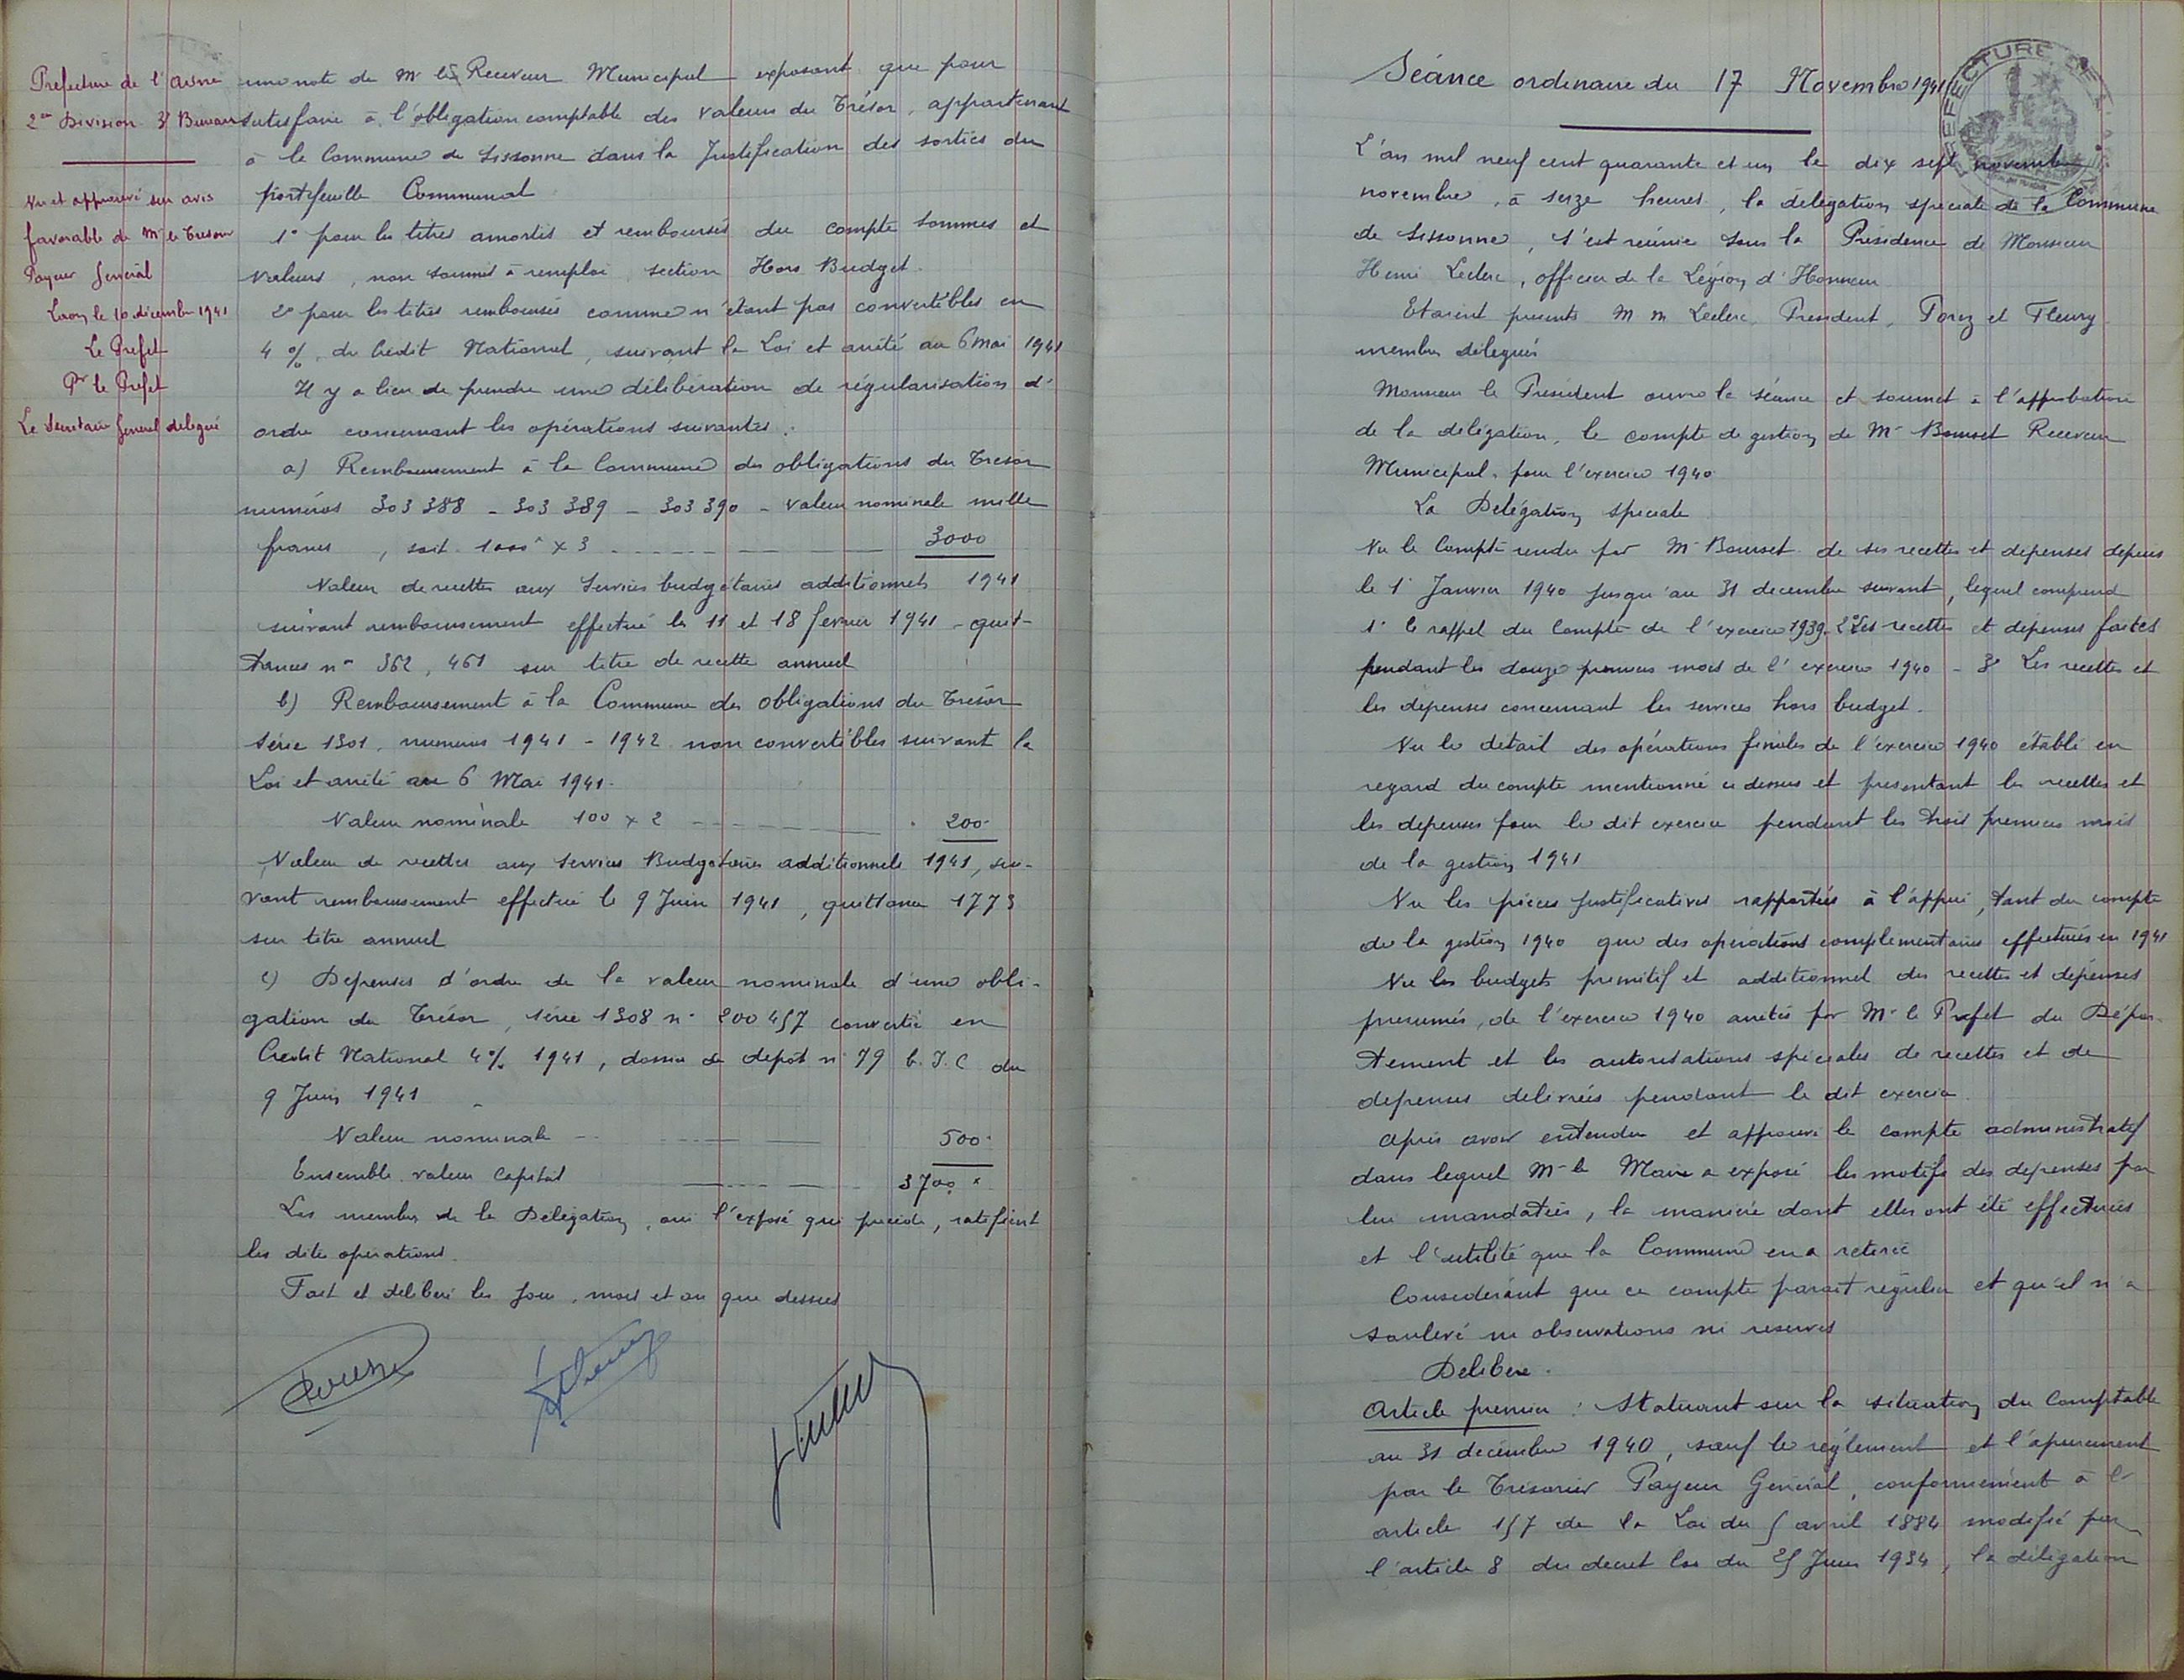 Prefecture de l'Aisne
2me Division 3e Bureau
Vu et approuvé sur avis
favorable de Mr le Tresorier
Payeur General
Laon, le 10 décembre 1941
Le Prefet
Pr le Prefet
Le Secretaire General délégué
une note de Mr le Receveur Municipal exposant que pour
satisfaire à l'obligation comptable des valeurs du Trésor, appartenant
à la Commune de Sissonne dans la Justification des sorties du
portefeuille Communal
1° pour les titres amortis et remboursés du compte sommes et
valeurs, non soumis à remploi section Hors Budget.
2° pour les titres remboursés comme n'étant pas convertibles en
4 % du Crédit National, suivant la Loi et arrêté au 6 mai 1941
Il y a lieu de prendre une délibération de régularisation d'
ordre concernant les opérations suivantes.
a) Remboursement à la Commune des obligations du Tresor
numéros 303 388 - 303 389 - 303 390 - valeur nominale mille
francs, soit 1000 x 3 3000
Valeur de recettes aux Services budgétaires additionnels 1941
suivant remboursement effectué les 11 et 18 fevrier 1941 - quit-
tances nos 362, 461 sur titre de recette annuel
b) Remboursement à la Commune des obligations du Trésor
Série 1301, numéros 1941 - 1942 non convertibles suivant la
Loi et arrêté au 6 Mai 1941.
Valeur nominale 100 x 2 200
Valeur de recettes aux Services Budgétaires additionnels 1941, sui-
vant remboursement effectué le 9 Juin 1941, quittance 1773
sur titre annuel
c) Depenses d'ordre de la valeur nominale d'une obli-
gation du Trésor, série 1308 n° 200 457 convertie en
Credit National 4% 1941, dossier de depôt n° 79 du
9 Juin 1941
Valeur nominale 500
Ensemble valeur capital 3700
Les membres de la Delegation, oui l'exposé qui precede, ratifient
les dites operations.
Fait et délibéré les jour, mois et an que dessus
Séance ordinaire du 17 Novembre 1941
PREFECTURE DE L'AISNE
L'an mil neuf cent quarante et un le dix sept novembre
novembre, à seize heures, la délégation speciale de la Commune
de Sissonne, s'est réunie sous la Présidence de Monsieur
Henri Leclerc, officier de la Légion d'Honneur
Etaient presents M m Leclerc, President, et Fleury
membres délégués
Monsieur le President ouvre la séance et soumet à l'approbation
de la délégation, le compte de gestion de Mr Bourset Receveur
Municipal pour l'exercice 1940
La Delégation speciale
Vu le Compte rendu par Mr Bourset de ses recettes et depenses depuis
le 1° Janvier 1940 jusqu'au 31 decembre suivant, lequel comprend
1° le rappel du Compte de l'exercice 1939. 2° Les recettes et dépenses faites
pendant les douze premiers mois de l'exercice 1940 - 3° Les recettes et
les dépenses concernant les services hors budget.
Vu le détail des opérations finales de l'exercice 1940 établi en
regard du compte mentionné ci dessus et presentant les recettes et
les depenses pour le dit exercice pendant les trois premiers mois
de la gestion 1941
Vu les pièces justificatives rapportées à l'appui, tant du compte
de la gestion 1940 que des opérations complémentaires effectuées en 1941
Vu les budgets primitif et additionnel des recettes et dépenses
presumés, de l'exercice 1940 arrêtés par Mr le Prefet du Dépar-
tement et les autorisations spéciales de recettes et de
depenses delivrées pendant le dit exercice
Après avoir entendu et approuvé le compte administratif
dans lequel Mr le Maire a exposé les motifs des depenses par
lui mandatées, la manière dont elles ont été effectuées
et l'utilité que la Commune en a retirée
Considérant que ce compte parait régulier et qu'il n'a
soulevé ni observations ni reserves
Delibere.
Article premier : Statuant sur la situation du Comptable
au 31 decembre 1940, sauf le règlement et l'apurement
par le Trésorier Payeur Général, conformément à l'
article 157 de la Loi du 5 avril 1884 modifié par
l'article 8 du decret loi du 25 Juin 1934, la délégation